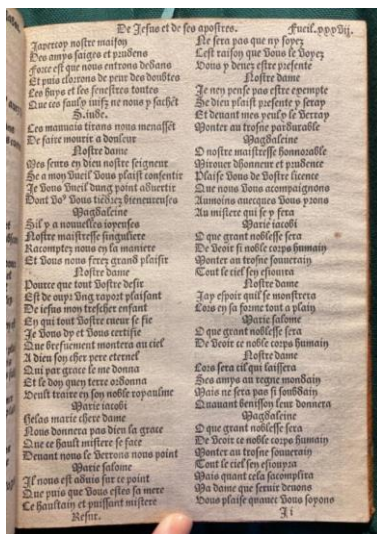 De Jesus et de ses apostres.
Fueil.xxxvij.
Japercoy nostre maison
Des amys saiges et prudens
Force est que nous entrons dedans
Et puis clorrons de peur des doubtes
Les huys et les fenestres toutes
Que ces faulx iuifz ne nous y sachēt
S.iude.
Ces mauuais tirans nous menassēt
De faire mourir a douleur
Nostre dame
Mes seurs en dieu nostre seigneur
Se a mon vueil vous plaist consentir
Je vous vueil dung point aduertir
Dont vo⁹ vous tiēdrez bieneureuses
Magdaleine
Sil y a nouuelles ioyeuses
Nostre maistresse singuliere
Racomptez nous en la maniere
Et vous nous ferez grand plaisir
Nostre dame
Pource que tout vostre desir
Est de ouyr vng raport plaisant
De iesus mon trescher enfant
En qui tout vostre cueur se fie
Je vous dy et vous certifie
Que briefuement montera au ciel
A dieu son cher pere eternel
Qui par grace le me donna
Et le don quen terre ordonna
Veult traire en son noble royaulme
Marie iacobi
Helas marie chere dame
Nous donnera pas dieu la grace
Que ce hault mistere se face
Deuant nous le verrons nous point
Marie salome
Il nous est aduis sur ce point
Que puis que vous estes sa mere
Ce haultain et puissant mistere
Resur.
Ne sera pas que ny soyez
Cest raison que vous le voyez
Vous y deuez estre presente
Nostre dame
Je nen pense pas estre exempte
Se dieu plaist presente y seray
Et deuant mes yeulx le verray
Monter au trosne pardurable
Magdaleine
O nostre maistresse honnorable
Mirouer dhonneur et prudence
Plaise vous de vostre licence
Que nous vous acompaignons
Aumoins auecques vous yrons
Au mistere qui se y fera
Marie iacobi
O que grant noblesse sera
De veoir si noble corps humain
Monter au trosne souuerain
Tout le ciel sen esiouira
Nostre dame
Jay espoir quil se monstrera
Lors en sa forme tout a plain
Marie salome
O que grant noblesse sera
De veoir ce noble corps humain
Nostre dame
Lors sera cil qui laissera
Ses amys au regne mondain
Mais ne sera pas si soubdain
Quauant benisson leur donnera
Magdaleine
O que grant noblesse sera
De veoir ce noble corps humain
Monter au trosne souuerain
Tout le ciel sen esiouyra
Mais quant cela sacomplira
Ma dame que seruir deuons
Vous plaise quauec vous soyons
J i